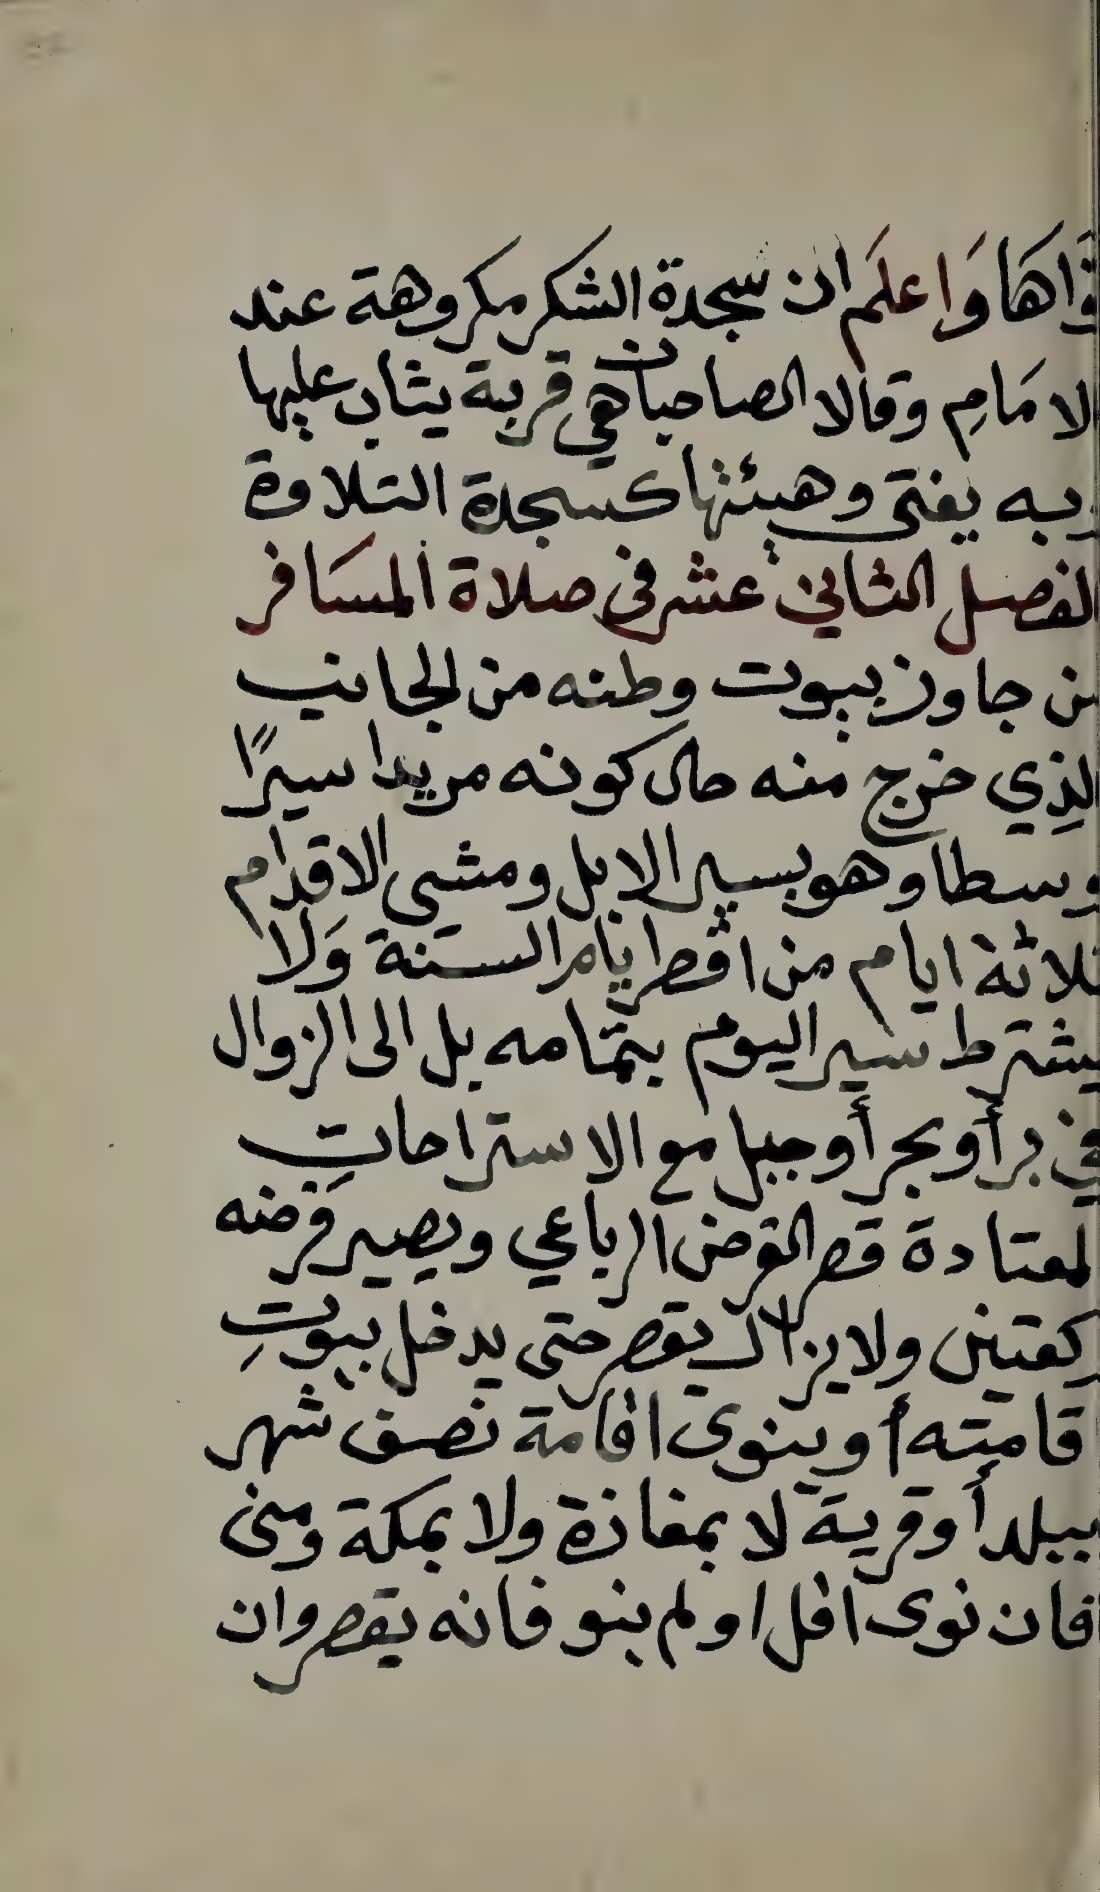 قراها وَاعلَم ان سجدة الشكر مكروهة عند
الامَامِ وقالا الصاحبان هي قربة يثاب عليها
وبه يفتى وهيئتها كسجدة التلاوة
الفصل الثاني عشر في صلاة المسَافر
من جاوز بيوت وطنه من الجانب
الذِي خرج منه حال كونه مريدا سيرًا
وسطا وهو بسير الابل ومشي الاقدام
ثلاثة ايام من اقصر ايام السنة وَلا
يشترط سير اليوم بتمامه بل الى الزوال
في بر أو بحر أو جبل مع الاستراحاتِ
المعتادة قصر الفرض الرباعي ويصير فرضه
ركعتين ولا يزال يقصر حتى يدخل بيوتِ
اقامته أو ينوى اقامة نصف شهر
ببلد أو قرية لا بمفازة ولا بمكة ومنى
فان نوى اقل او لم ينو فانه يقصر وان